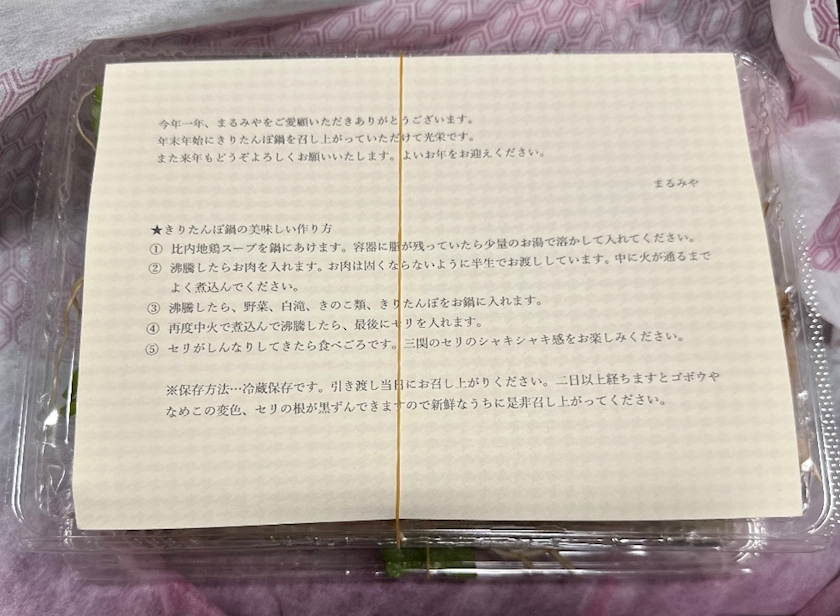 今年一年、まるみやをご愛顧いただきありがとうございます。
年末年始にきりたんぽ鍋を召し上がっていただけて光栄です。
また来年もどうぞよろしくお願いいたします。よいお年をお迎えください。
まるみや
★きりたんぽ鍋の美味しい作り方
① 比内地鶏スープを鍋にあけます。容器に脂が残っていたら少量のお湯で溶かして入れてください。
② 沸騰したらお肉を入れます。お肉は固くならないように半生でお渡ししています。中に火が通るまで
よく煮込んでください。
③ 沸騰したら、野菜、白滝、きのこ類、きりたんぽをお鍋に入れます。
④ 再度中火で煮込んで沸騰したら、最後にセリを入れます。
⑤ セリがしんなりしてきたら食べごろです。三関のセリのシャキシャキ感をお楽しみください。
※保存方法…冷蔵保存です。引き渡し当日にお召し上がりください。二日以上経ちますとゴボウや
なめこの変色、セリの根が黒ずんできますので新鮮なうちに是非召し上がってください。